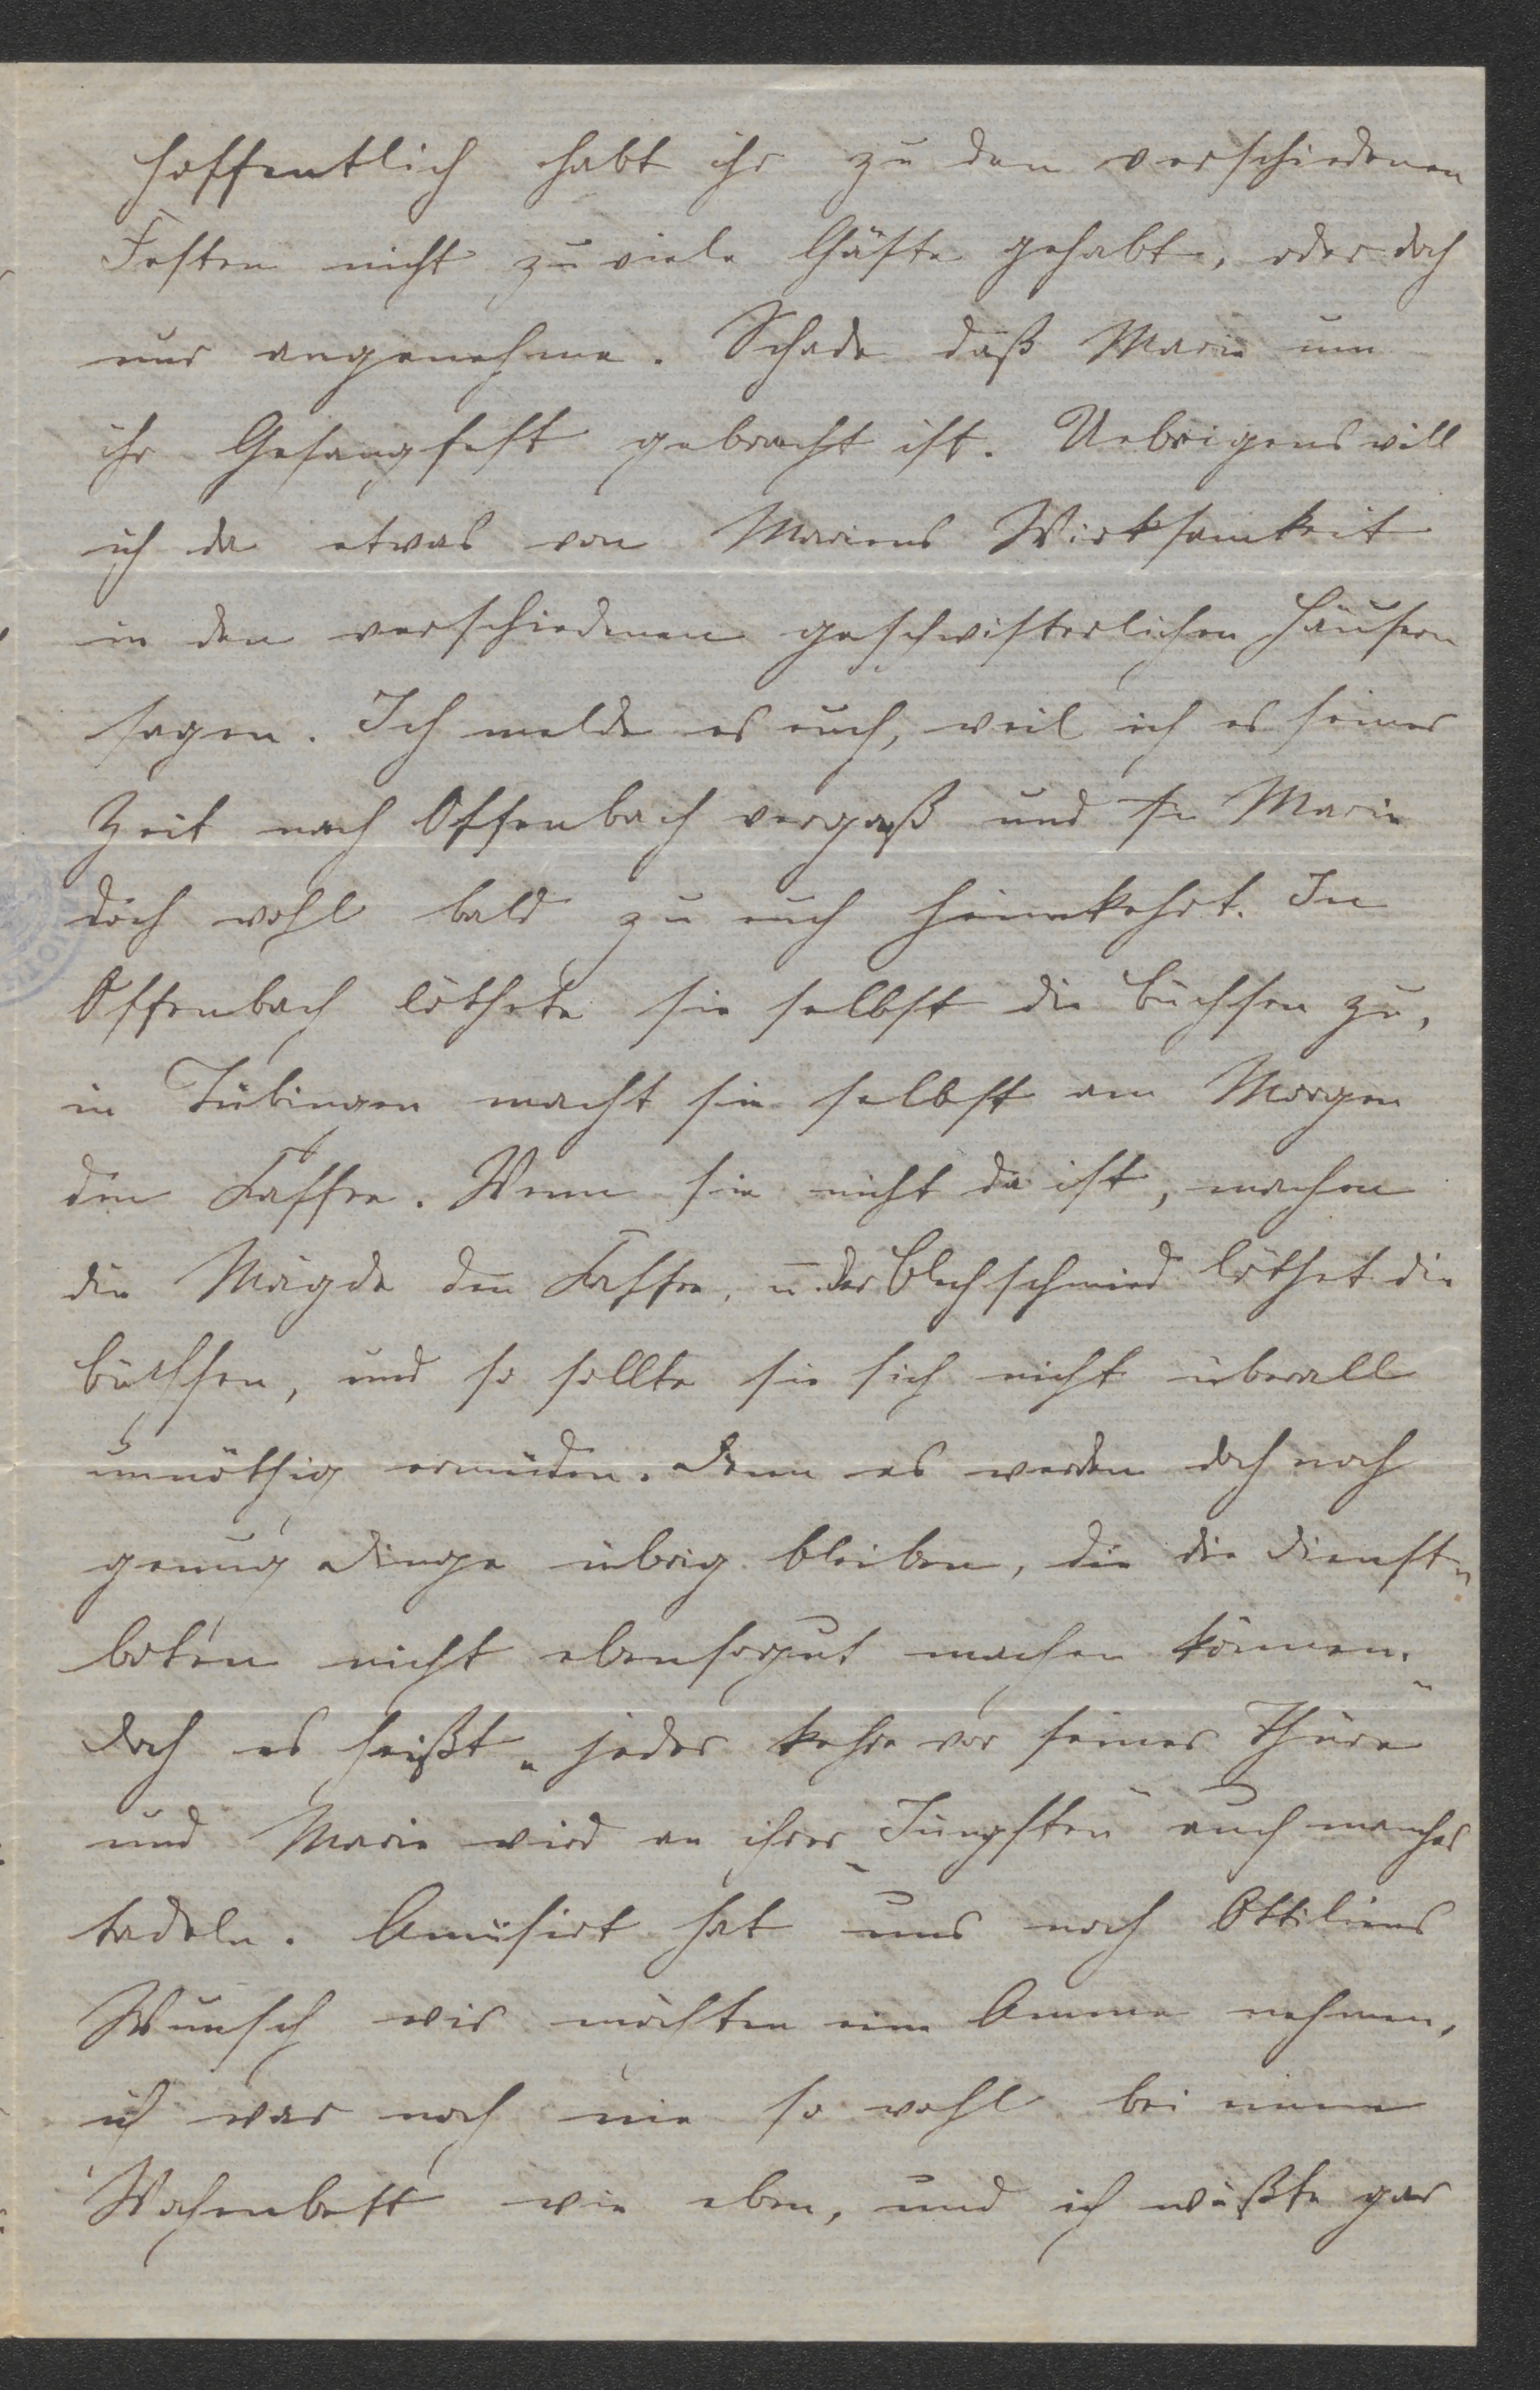 Hoffentlich habt ihr zu den verschiedenen
Festen nicht zu viele Gäste gehabt, oder doch
nur angenehme. Schade daß Marie um
ihr Gesangfest gebracht ist. Uebrigens will
ich da etwas von Mariens Wirksamkeit
in den verschiedenen geschwisterlichen Häusern
sagen. Ich melde es euch, weil ich es seiner
Zeit nach Offenbach vergaß und Marie
doch wohl bald zu euch heimkehrt. In
Offenbach löthete sie selbst die Büchsen zu,
in Tübingen macht sie selbst am Morgen
den Kaffee. Wenn sie nicht da ist, machen
die Mägde den Kaffee, u. der Blechschmied löthet die
Büchsen, und so sollte sie sich nicht überall
unnöthig ermüden. Denn es werden doch noch
genug Dinge übrig bleiben, die die Dienst-
boten nicht ebensogut machen können.
Doch es heißt „jeder kehre vor seiner Thüre“
und Marie wird an ihrer „Jüngsten“ auch manches
tadeln. Amüsirt hat uns noch Ottiliens
Wunsch wir möchten eine Amme nehmen,
ich war noch nie so wohl bei einem
Wochenbett wie eben, und ich wüßte gar